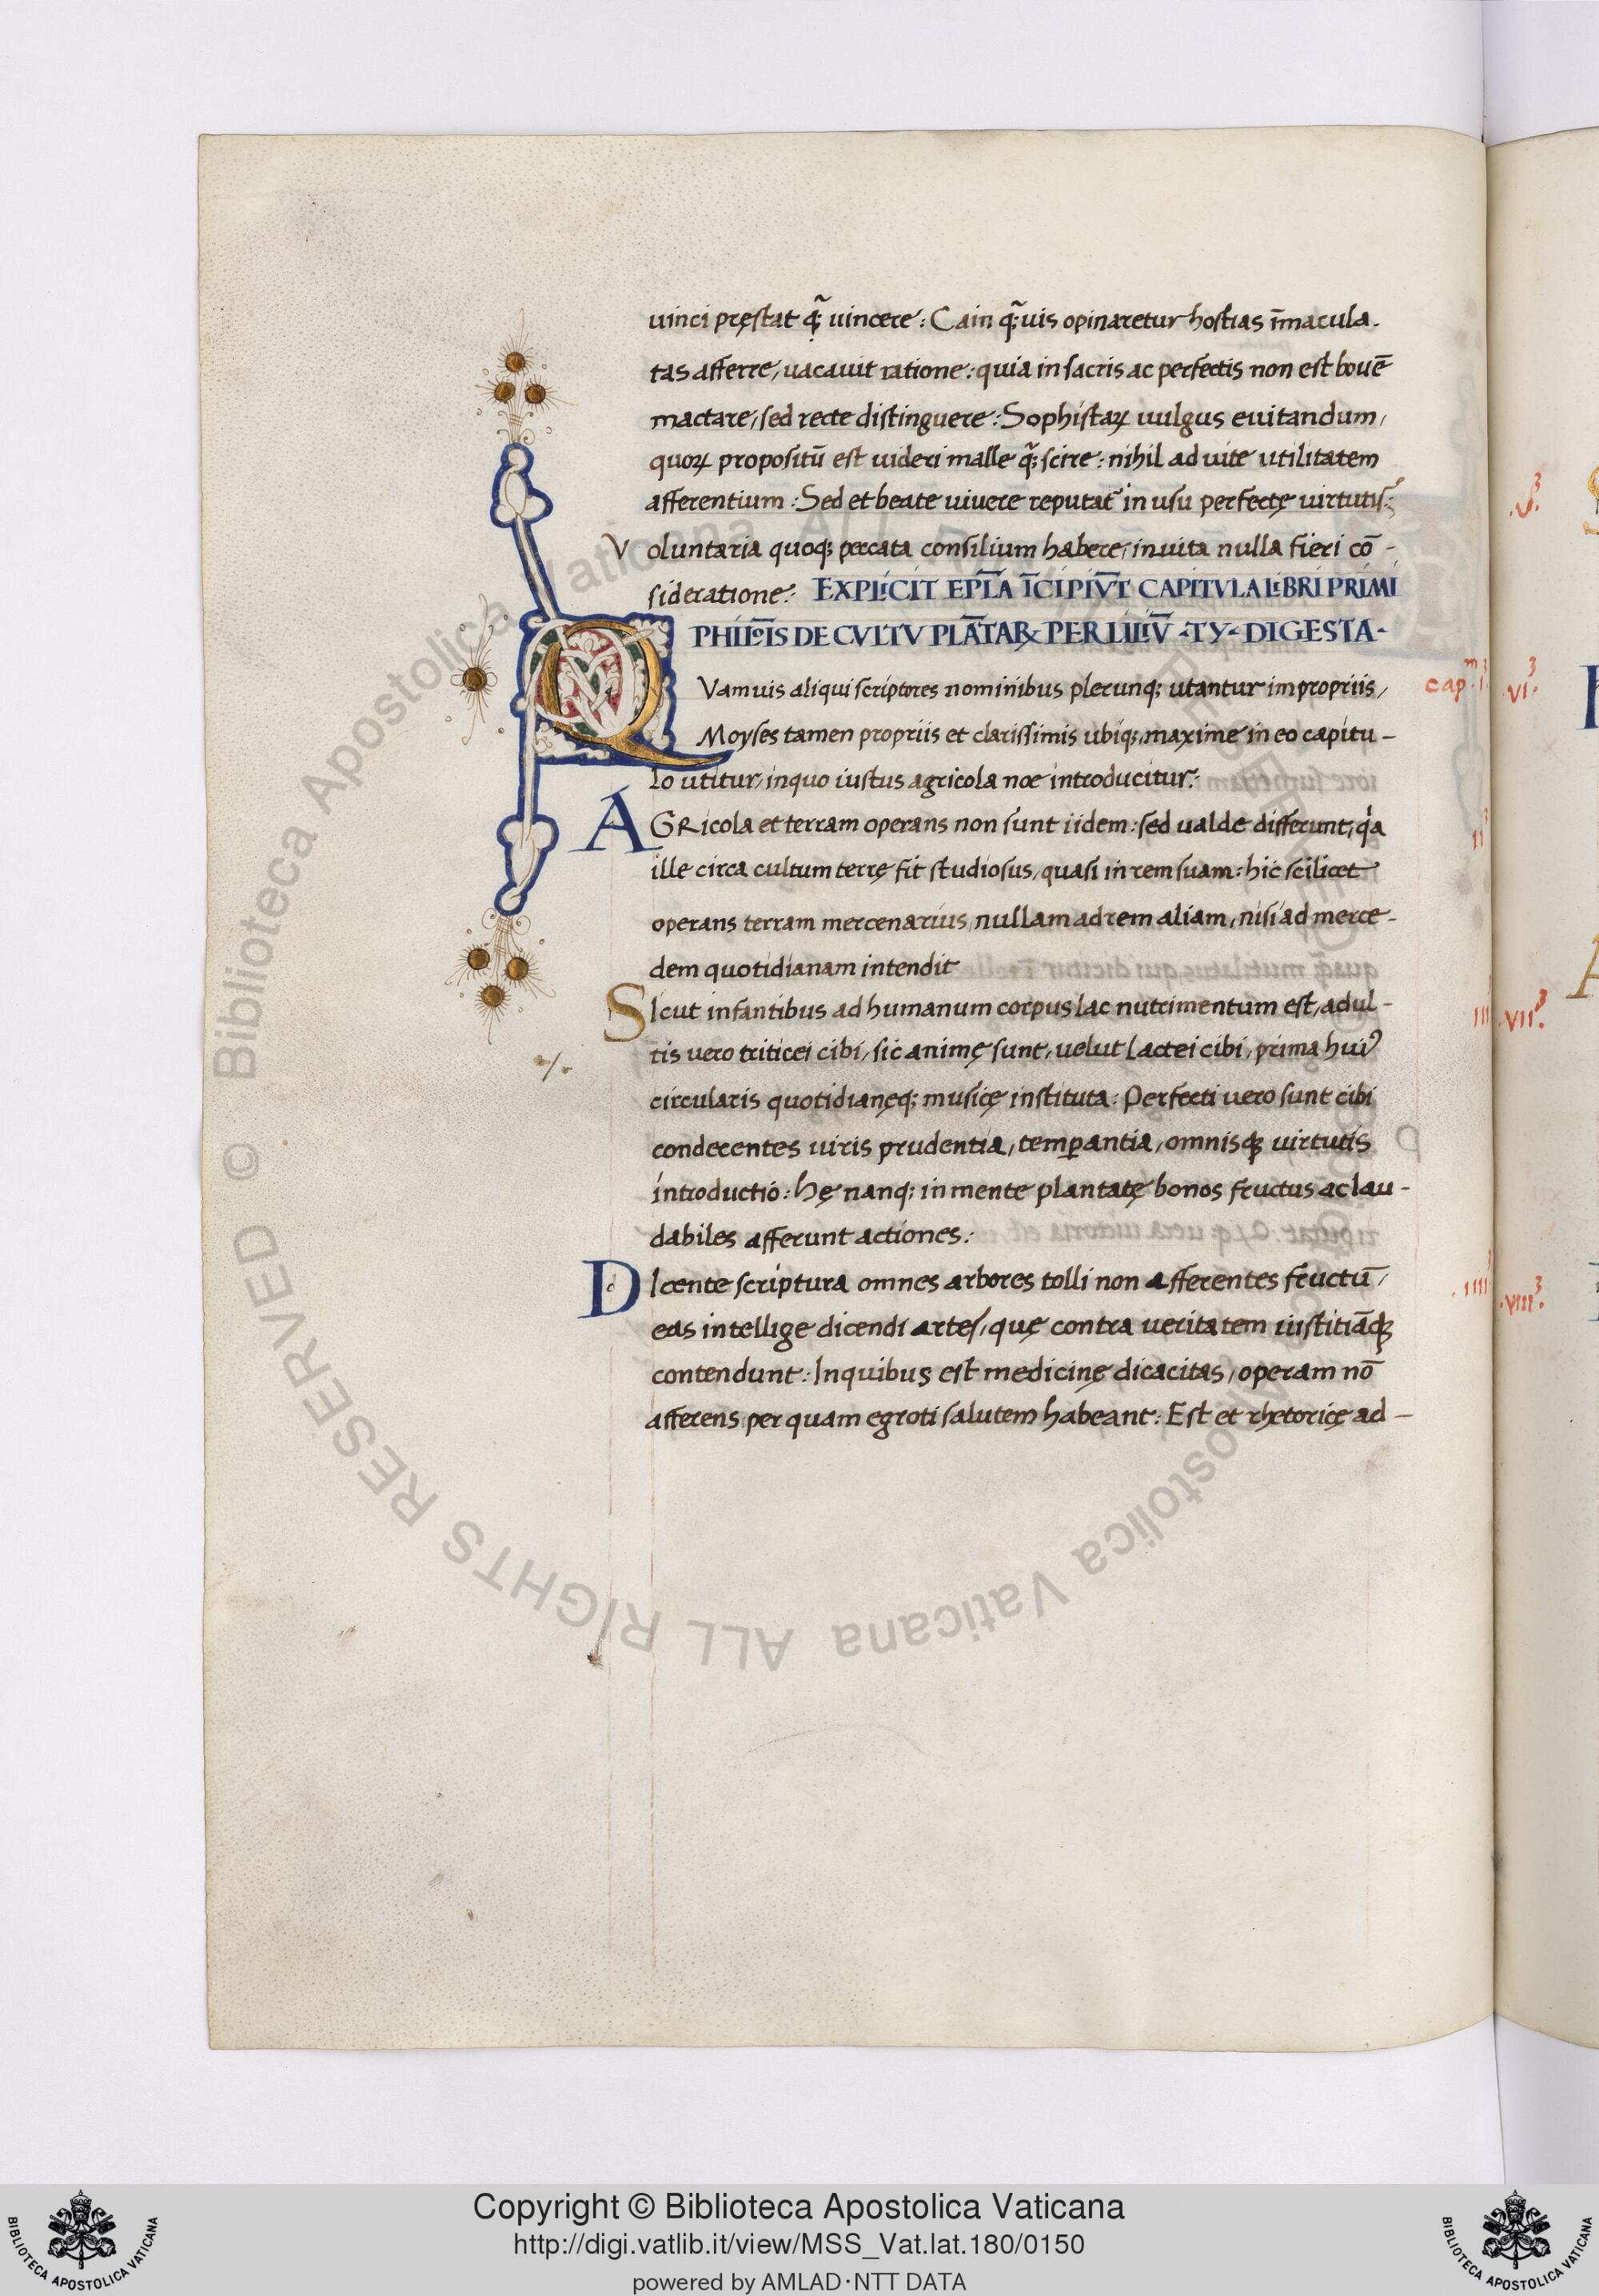 uinci pręstat q̃; uincere : Cain q̃;uis opinaretur hostias īmacula-
tas afferre, uacauit ratione : quia in sacris ac perfectis non est bouē
mactare, sed recte distinguere : Sophistaꝝ uulgus euitandum,
quoꝝ propositū est uideri malle q̃; scire : nihil ad uite utilitatem
afferentium : Sed et beate uiuere reputat̃ in usu perfectę uirtutis :
Voluntaria quoq; peccata consilium habere, inuita nulla fieri cō-
sideratione : EXPLICIT EPL̄A ĪCIPIV̄T CAPITVLA LIBRI PRIMI
PHILOIS DE CVLTV PLĀTAꝜ PER LILIV̄ -TY- DIGESTA-
QVamuis aliqui scriptores nominibus plerunq; utantur impropriis,
Moyses tamen propriis et clarissimis ubiq;, maxime in eo capitu-
lo utitur, inquo iustus agricola noe introducitur :
cap.m i.
AGRicola et terram operans non sunt iidem : sed ualde differunt, qa
ii
ille circa cultum terrę fit studiosus, quasi in rem suam : hic scilicet
operans terram mercenarius, nullam ad rem aliam, nisi ad merce-
dem quotidianam intendit
SIcut infantibus ad humanum corpus lac nutrimentum est, adul-
iii
tis uero triticei cibi, sic animę sunt, uelut lactei cibi, prima huiꝰ
circularis quotidianęq; musicę instituta : Perfecti uero sunt cibi
condecentes uiris prudentia, temꝑantia, omnisq; uirtutis
introductio : hę nanq; in mente plantatę bonos fructus ac lau-
dabiles afferunt actiones :
DIcente scriptura omnes arbores tolli non afferentes fructū,
.iiii
eas intellige dicendi artes, quę contra ueritatem iustitiāq;
contendunt : Inquibus est medicinę dicacitas, operam nō
afferens per quam egroti salutem habeant : Est et rhetoricę ad-
.v.
.vi.
.vii.
.viii.
Copyright © Biblioteca Apostolica Vaticana
http://digi.vatlib.it/view/MSS_Vat.lat.180/0150
powered by AMLAD·NTT DATA
BIBLIOTECA APOSTOLICA VATICANA
BIBLIOTECA APOSTOLICA VATICANA
© Biblioteca Apostolica Vaticana ALL RIGHTS RESERVED